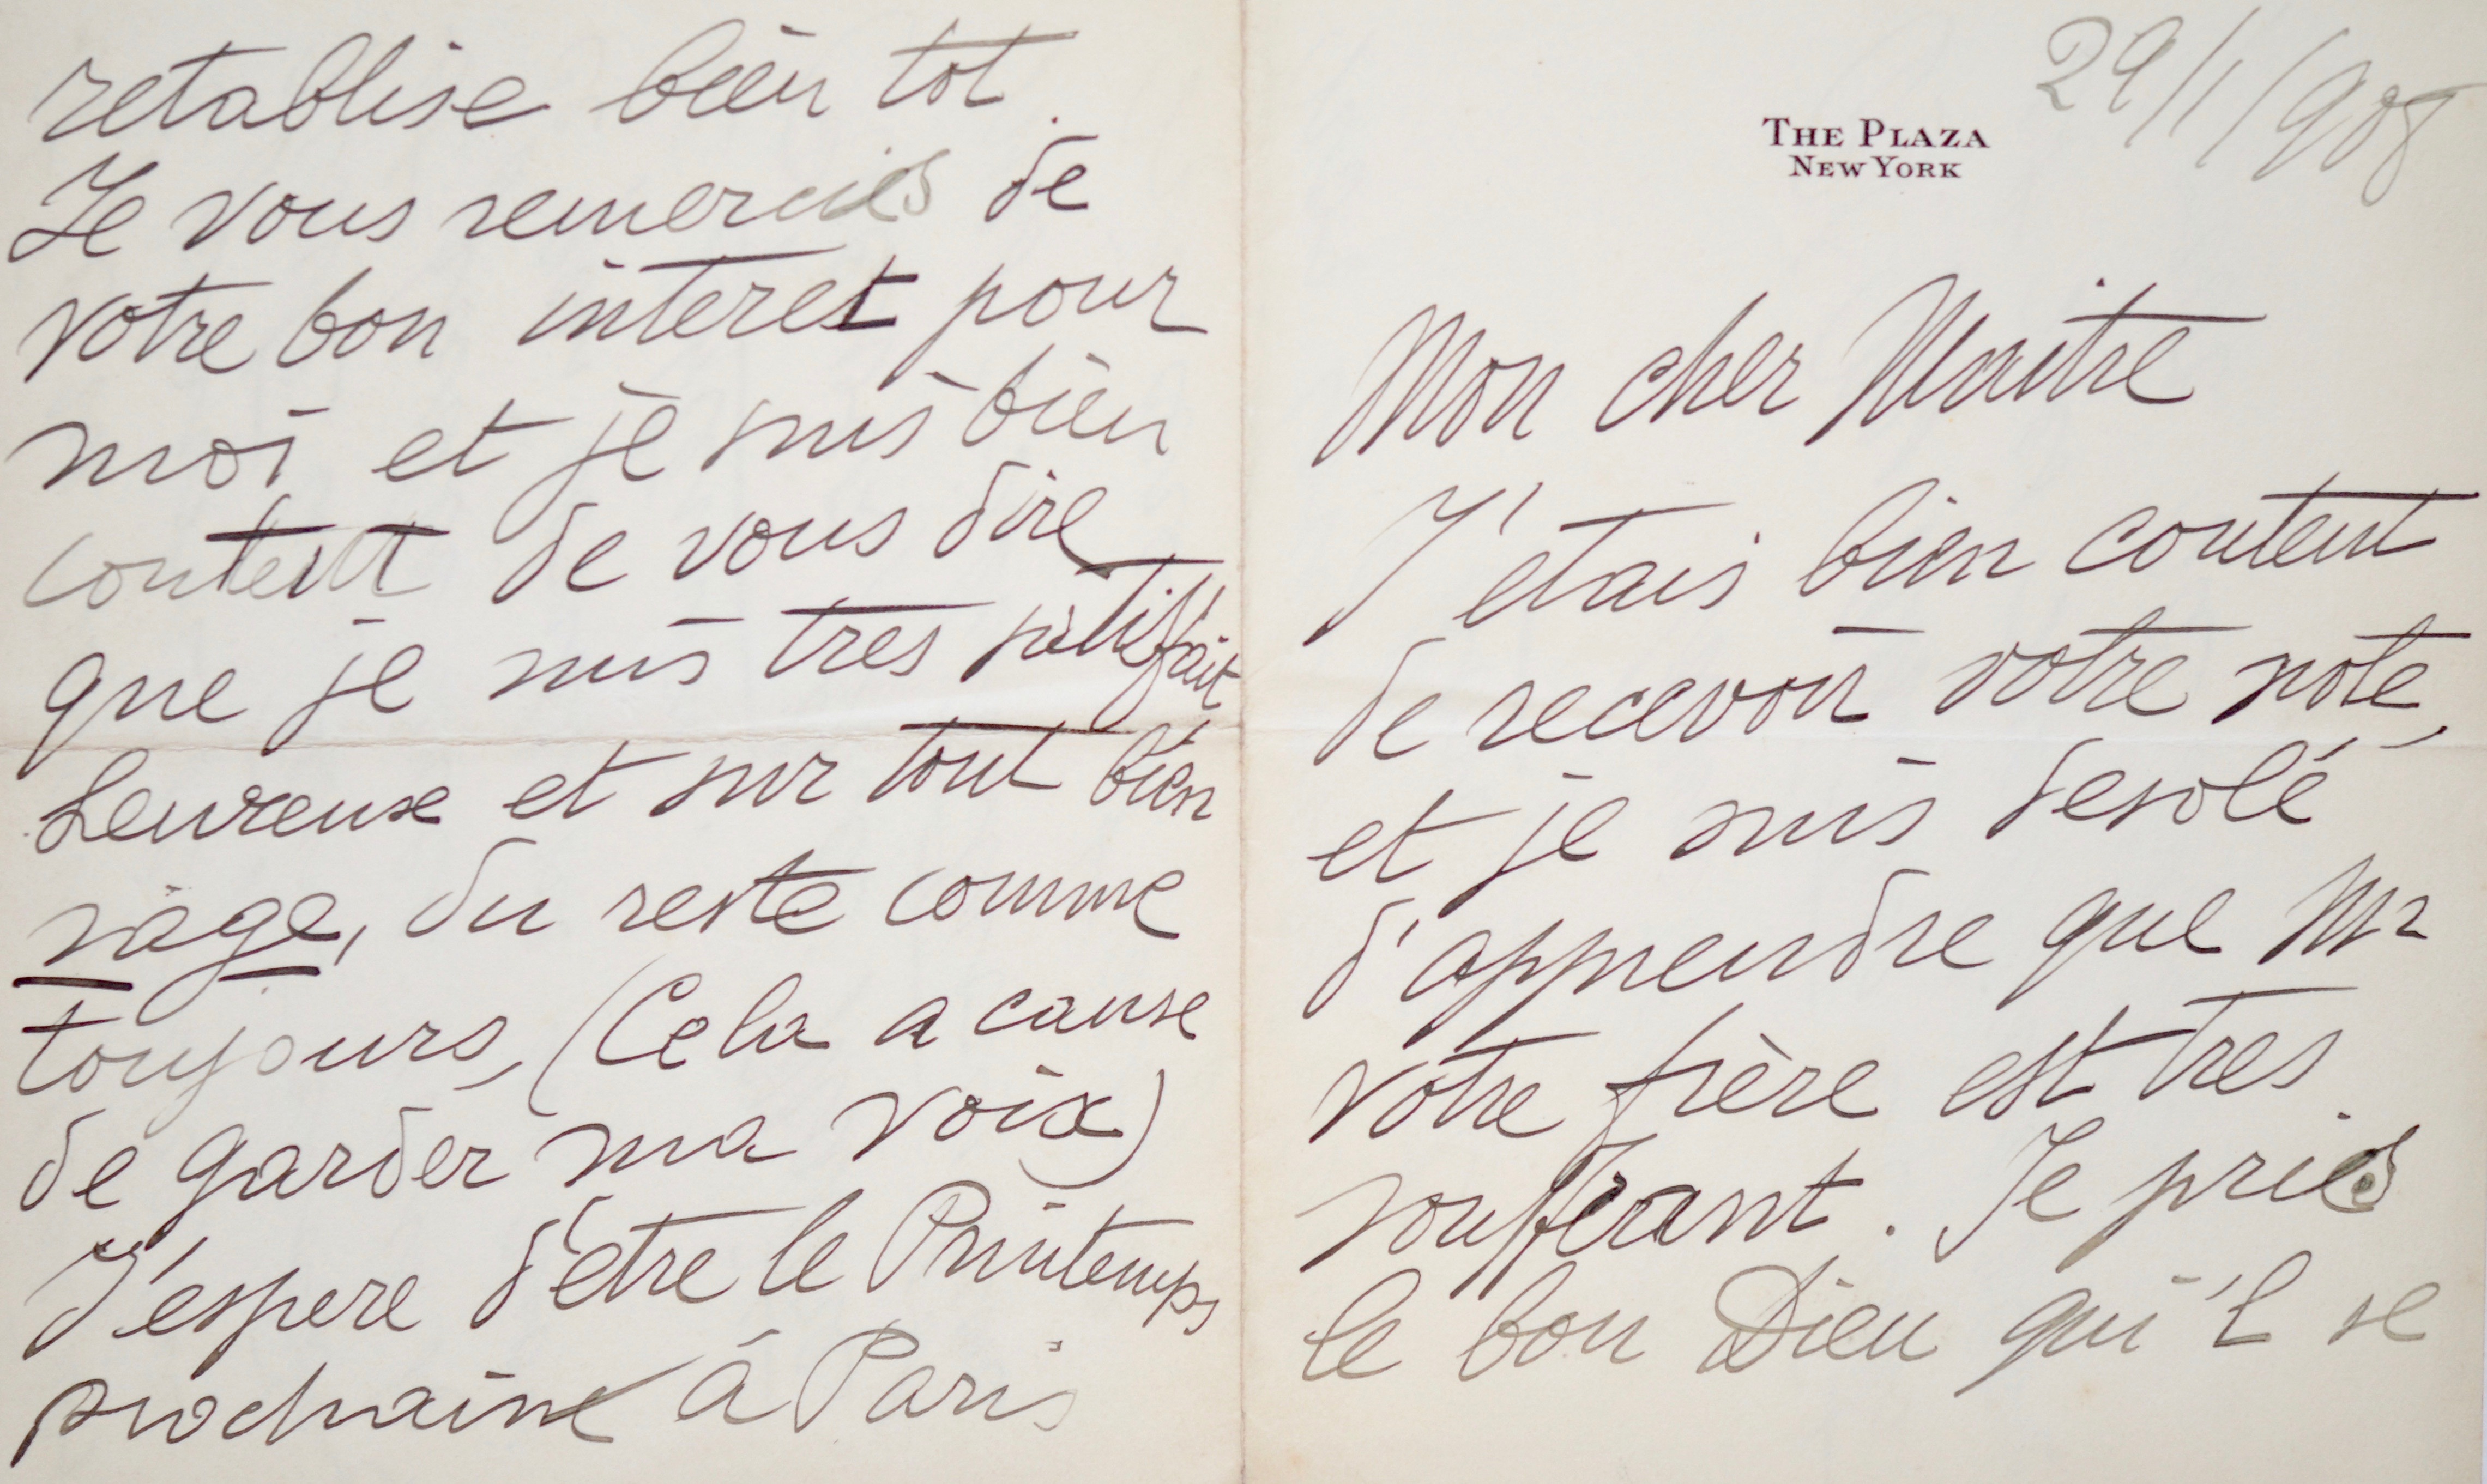 THE PLAZA
NEW YORK
29/1/908
Mon cher Maitre
J'etais bien content
de recevoir votre note,
et je suis desolé
d'apprendre que Mr
votre frère est tres
souffrant. Je pries
le bon Dieu qui'l se
retablise bien tot.
Je vous remercies de
votre bon interet pour
moi et je suis bien
content de vous dire
que je suis tres satisfait
heureuse et sur tout bien
sage, du reste comme
toujours, (Cela a cause
de garder ma voix)
J'espere d'etre le Printemps
prochaine à Paris